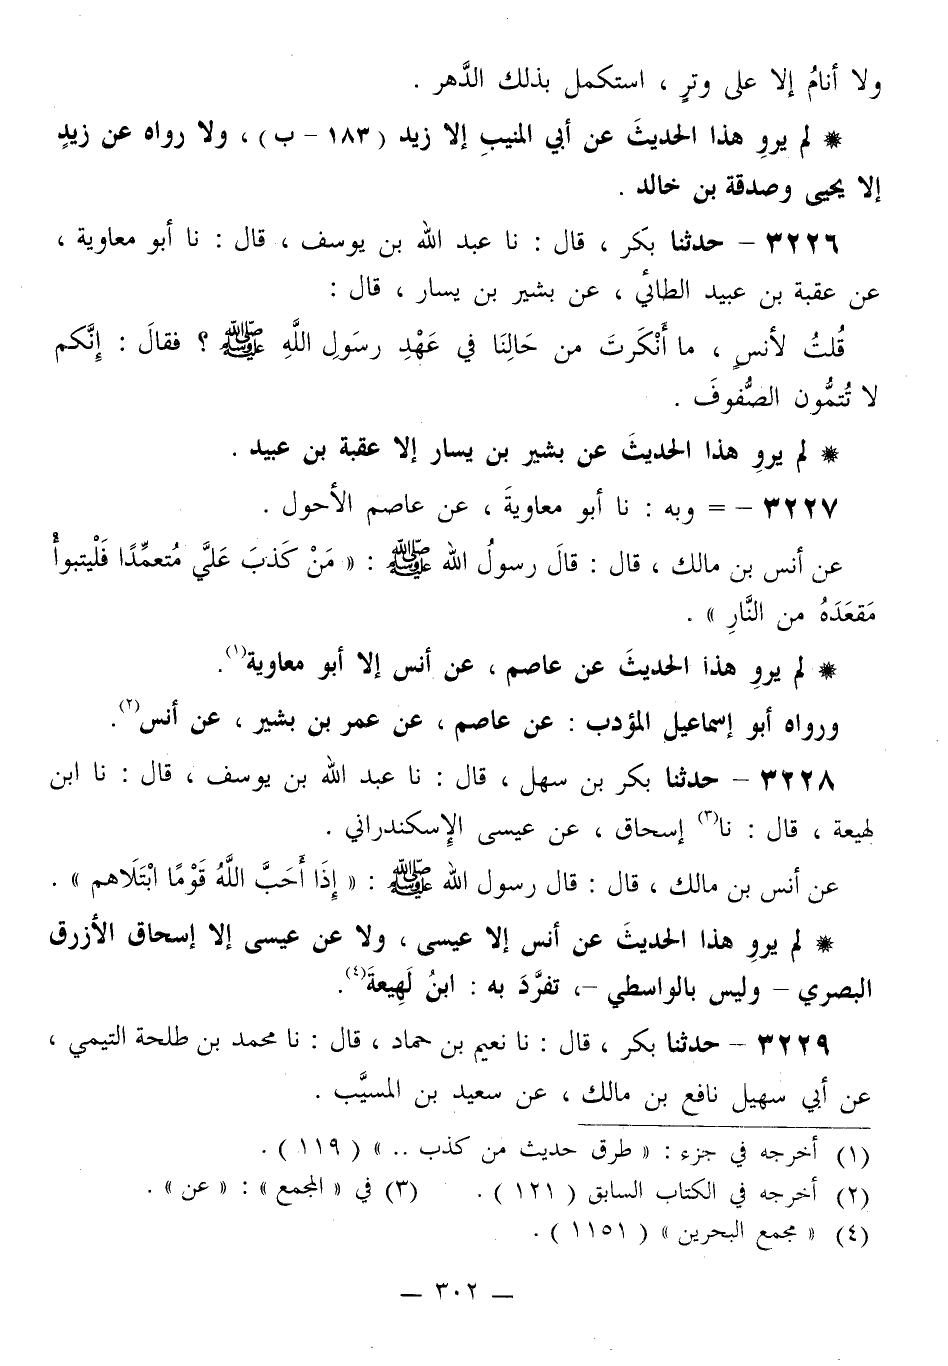 ولا أنامُ إلا على وترٍ ، استكمل بذلك الدَّهر .
* لم يروِ هذا الحديثَ عن أبي المنيبِ إلا زيد ( ١٨٣ – ب ) ، ولا رواه عن زيدٍ
إلا يحيى وصدقة بن خالد .
٣٢٢٦ – حدثنا بكر ، قال : نا عبد الله بن يوسف ، قال : نا أبو معاوية ،
عن عقبة بن عبيد الطائي ، عن بشير بن يسار ، قال :
قُلتُ لأنسٍ ، ما أَنْكَرتَ من حَالِنَا في عَهْدِ رسَولِ اللَّهِ ﷺ ؟ فقالَ : إنَّكم
لا تُتمُّون الصُّفوفَ .
* لم يروِ هذا الحديثَ عن بشير بن يسار إلا عقبة بن عبيد .
٣٢٢٧ – = وبه : نا أبو معاويةَ ، عن عاصم الأحول .
عن أنس بن مالك ، قال : قالَ رسولُ الله ﷺ : « مَنْ كَذبَ عَليَّ مُتعمِّدًا فَلْيتبوأْ
مَقعَدَهُ من النَّارِ » .
* لم يروِ هذا الحديثَ عن عاصم ، عن أنس إلا أبو معاوية(١).
ورواه أبو إسماعيل المؤدب : عن عاصم ، عن عمر بن بشير ، عن أنس(٢).
٣٢٢٨ – حدثنا بكر بن سهل ، قال : نا عبد الله بن يوسف ، قال : نا ابن
لهيعة ، قال : نا(٣) إسحاق ، عن عيسى الإسكندراني .
عن أنس بن مالك ، قال : قال رسول الله ﷺ : « إِذَا أَحَبَّ اللَّهُ قَوْمًا ابْتَلَاهم » .
* لم يروِ هذا الحديثَ عن أنس إلا عيسى ، ولا عن عيسى إلا إسحاق الأزرق
البصري – وليس بالواسطي –، تفرَّدَ به : ابنُ لَهِيعةَ(٤).
٣٢٢٩ – حدثنا بكر ، قال : نا نعيم بن حماد ، قال : نا محمد بن طلحة التيمي ،
عن أبي سهيل نافع بن مالك ، عن سعيد بن المسيَّب .
(١) أخرجه في جزء : « طرق حديث من كذب .. » ( ١١٩ ) .
(٢) أخرجه في الكتاب السابق ( ١٢١ ) . (٣) في « المجمع » : « عن » .
(٤) « مجمع البحرين » ( ١١٥١ ) .
– ٣٠٢ –